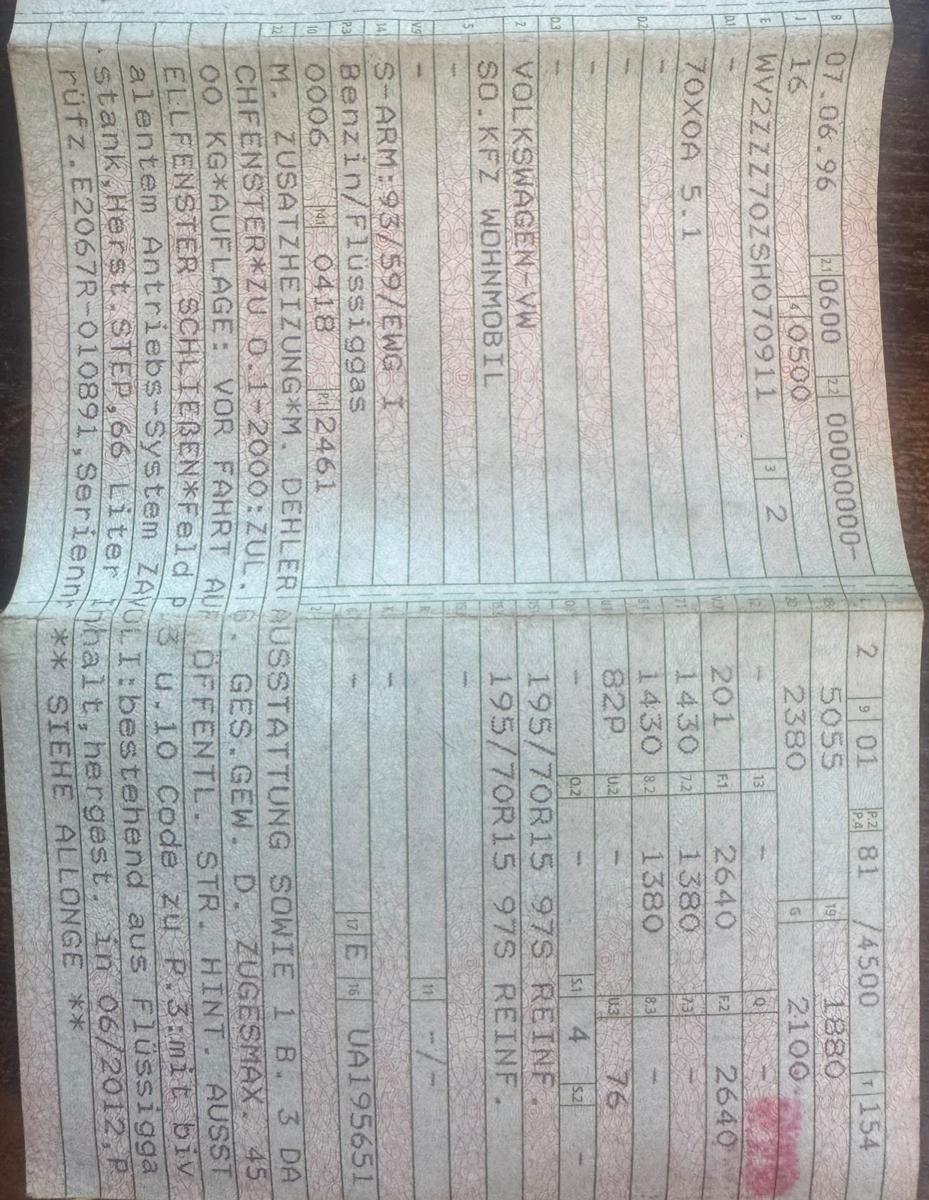 B 07.06.96 2.1 0600 2.2 00000000-
J 16 4 0500
E WV2ZZZ70ZSH070911 3 2
D.1 -
70X0A 5.1
-
D.2 -
-
D.3 -
2 VOLKSWAGEN-VW
5 SO.KFZ WOHNMOBIL
-
V.9 -
14 S-ARM:93/59/EWG I
P.3 Benzin/Flüssiggas
10 0006 P.4 0418 P.1 2461
L 2 9 01 P.2 P.4 81 /4500 T 154
18 5055 19 1880
20 2380 G 2100
12 - 13 - Q -
V.7 201 F.1 2640 F.2 2640
7.1 1430 7.2 1380 7.3 -
8.1 1430 8.2 1380 8.3 -
U.1 82P U.2 - U.3 76
O.1 - O.2 - S.1 4 S.2 -
15.1 195/70R15 97S REINF.
15.2 195/70R15 97S REINF.
15.3 -
R 11 -/-
K -
6 - 17 E 16 UA195651
21
22 M. ZUSATZHEIZUNG*M. DEHLER AUSSTATTUNG SOWIE 1 B. 3 DA
CHFENSTER*ZU 0.1-2000:ZUL. G. GES.GEW. D. ZUGESMAX. 45
00 KG*AUFLAGE: VOR FAHRT AUF ÖFFENTL. STR. HINT. AUSST
ELLFENSTER SCHLIEßEN*Feld P.3 u.10 Code zu P.3:mit biv
alentem Antriebs-System ZAVOLI:bestehend aus Flüssigga
stank,Herst.STEP,66 Liter Inhalt,hergest. in 06/2012,P
rüfz.E2067R-010891,Seriennr ** SIEHE ALLONGE **